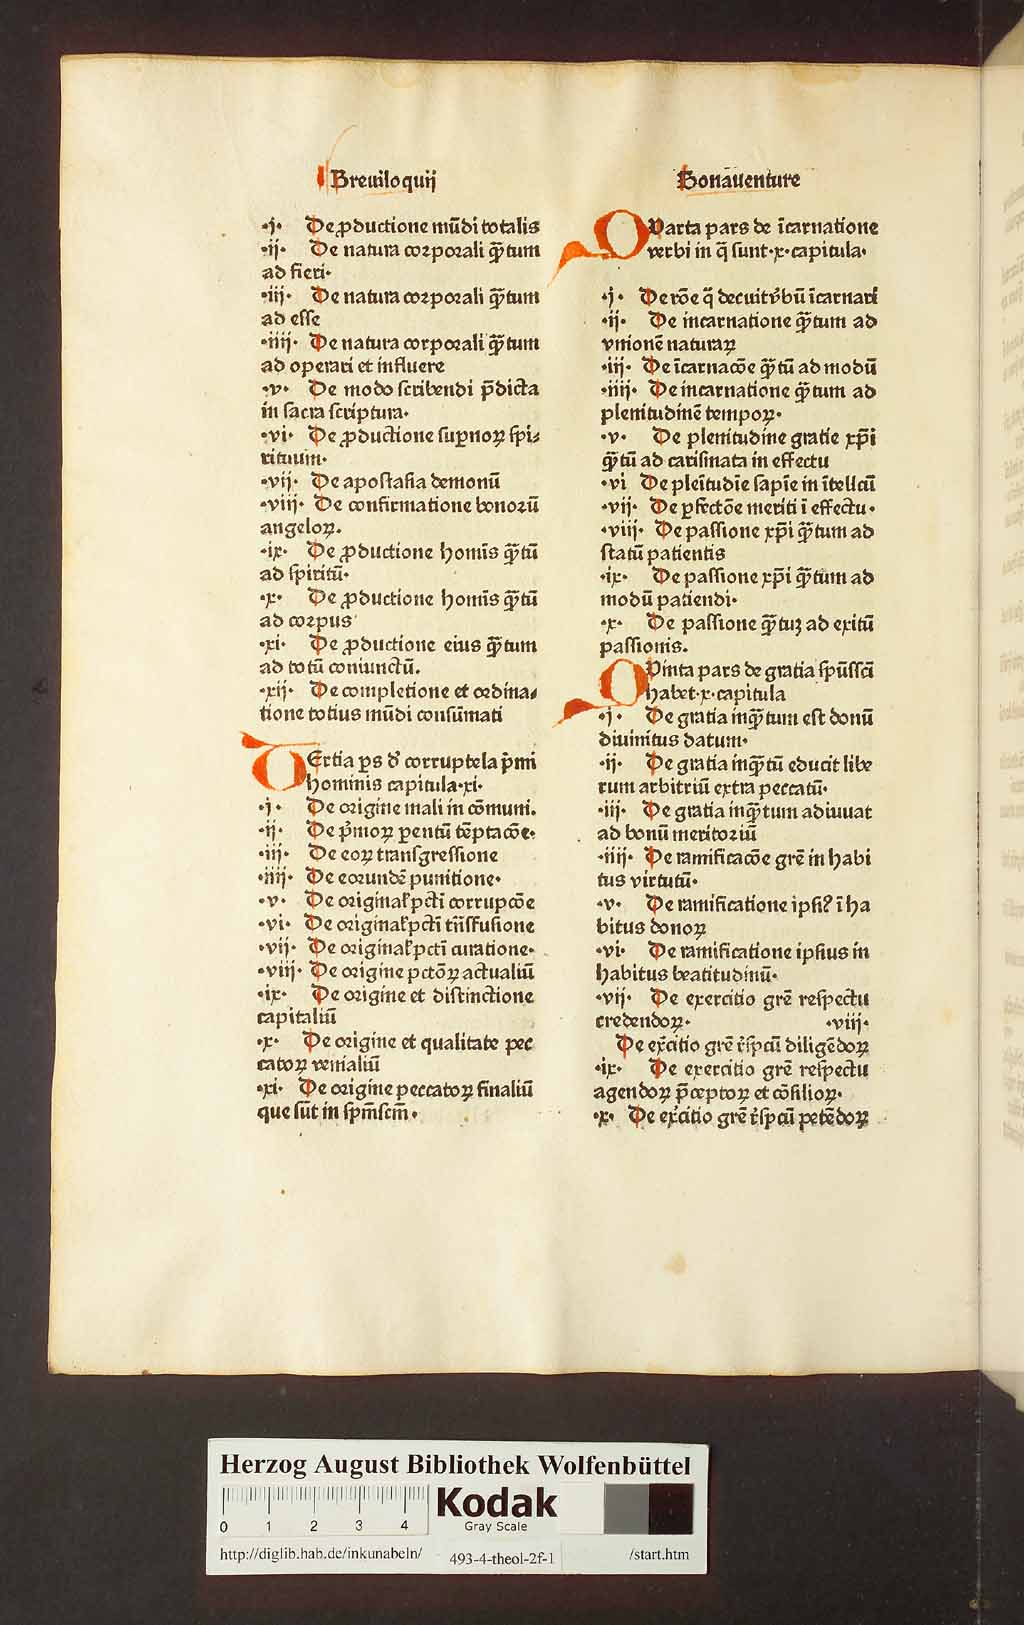 Breuiloquij
·j· De ꝓductione mūdi totalis
·ij· De natura corporali qᷓtum
ad fieri·
·iij· De natura corporali qᷓtum
ad esse
·iiij· De natura corporali qᷓtum
ad operari et influere
·v· De modo scribendi p̄dicta
in sacra scriptura·
·vi· De ꝓductione suꝑnoꝝ spi⸗
rituum·
·vij· De apostasia demonū
·viij· De confirmatione bonorū
angeloꝝ.
·ix· De ꝓductione homīs qᷓtū
ad spiritū·
·x· De ꝓductione homīs qᷓtū
ad corpus
·xi· De ꝓductione eius qᷓtum
ad totū coniunctū.
·xij· De completione et ordina⸗
tione totius mūdi consūmati
TErtia ꝑs d̓ corruptela p̄mi
hominis capitula·xi·
·j· De origine mali in cōmuni.
·ij· De p̓moꝝ ꝑentū tēptacōe·
·iij· De eoꝝ transgressione
·iiij· De eorundē punitione·
·v· De original̓ pct̄i corrupcōe
·vi· De original̓ pct̄i trāsfusione
·vij· De original̓ pct̄i curatione·
·viij· De origine pctōꝝ actualiū
·ix· De origine et distinctione
capitaliū
·x· De origine et qualitate pec
catoꝝ venialiū
·xi· De origine peccatoꝝ finaliū
que sūt in spm̄scm̄·
Bonāuenture
QVarta pars de īcarnatione
verbi in q̄ sunt·x·capitula·
·j· De rōe q̄ decuit v̓bū īcarnari
·ij· De incarnatione qᷓtum ad
vnionē naturaꝝ
·iij· De īcarnacōe qᷓtū ad modū
·iiij· De incarnatione qᷓtum ad
plenitudinē tempoꝝ·
·v· De plenitudine gratie xp̄i
qᷓtū ad carismata in effectu
·vi De pleītudīe sapīe in ītellcū
·vij· De ꝑfectōe meriti ī effectu·
·viij· De passione xp̄i qᷓtum ad
statū patientis
·ix· De passione xp̄i qᷓtum ad
modū patiendi·
·x· De passione qᷓtuꝫ ad exitū
passionis.
QVinta pars de gratia spūssct̄i
habet·x·capitula
·j· De gratia inqᷓtum est donū
diuinitus datum·
·ij· De gratia inqᷓtū educit libe
rum arbitriū extra peccatū·
·iij· De gratia inqᷓtum adiuuat
ad bonū meritoriū
·iiij· De ramificacōe grē in habi
tus virtutū·
·v· De ramificatione ipsiꝰ ī ha
bitus donoꝝ
·vi· De ramificatione ipsius in
habitus beatitudinū·
·vij· De exercitio grē respectu
credendoꝝ· ·viij·
De ex̓citio grē r̄spcū diligēdoꝝ
·ix· De exercitio grē respectu
agendoꝝ p̄ceptoꝝ et cōsilioꝝ·
·x· De ex̓citio grē r̄spcū petēdoꝝ
Herzog August Bibliothek Wolfenbüttel
0 1 2 3 4
Kodak
Gray Scale
http://diglib.hab.de/inkunabeln/ 493-4-theol-2f-1 /start.htm